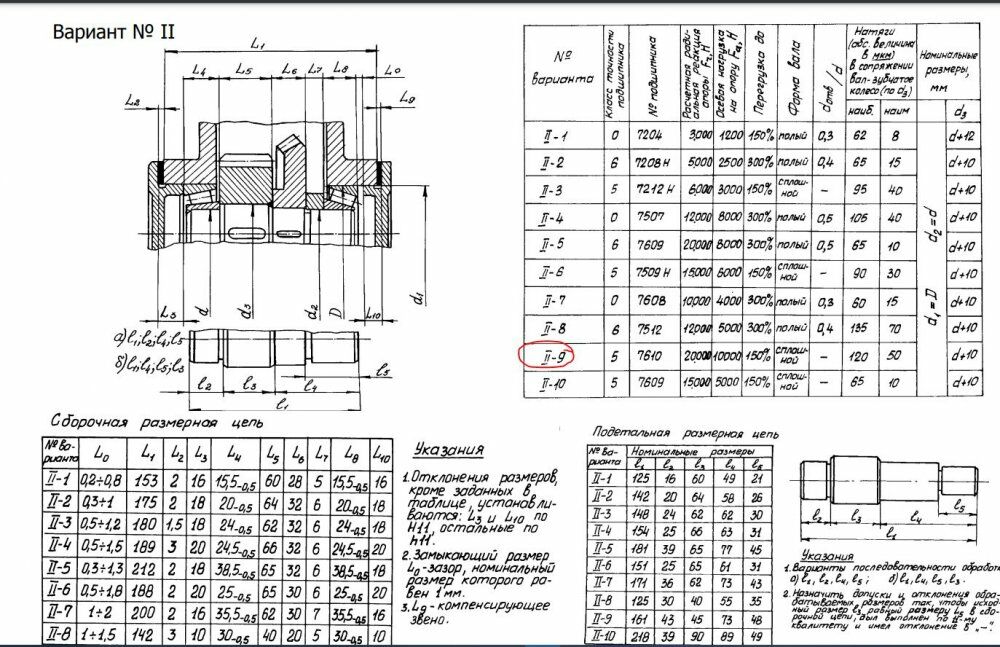 Вариант № II
L₁
L₄ L₅ L₆ L₇ L₈ L₀
L₂
L₉
L₃
d
d₃
d₂
D
d₁
L₁₀
а) l₁; l₂; l₄; l₅
б) l₁; l₄; l₅; l₃
l₂ l₃ l₄ l₅
l₁
№ варианта | Класс точности подшипника | № подшипника | Расчетная радиальная реакция опоры Fr, Н | Осевая нагрузка на опору Fa, Н | Перегрузка до | Форма вала | dотв/d | Натяги (абс. величина в мкм) в сопряжении вал-зубчатое колесо (по d₃) | Номинальные размеры, мм
наиб. | наим | d₃
II-1 0 7204 3000 1200 150% полый 0,3 62 8 d+12
II-2 6 7208Н 5000 2500 300% полый 0,4 65 15 d+10
II-3 5 7212Н 6000 3000 150% сплошной – 95 40 d+10
II-4 0 7507 12000 8000 300% полый 0,5 105 40 d+10
II-5 6 7609 20000 8000 300% полый 0,5 65 10 d+10
II-6 5 7509Н 15000 6000 150% сплошной – 90 30 d+10
II-7 0 7608 10000 4000 300% полый 0,3 60 15 d+10
II-8 6 7512 12000 5000 300% полый 0,4 135 70 d+10
II-9 5 7610 20000 10000 150% сплошной – 120 50 d+10
II-10 5 7609 15000 5000 150% сплошной – 65 10 d+10
d₁=D d₂=d
Сборочная размерная цепь
№ варианта L₀ L₁ L₂ L₃ L₄ L₅ L₆ L₇ L₈ L₁₀
II-1 0,2÷0,8 153 2 16 15,5₋₀,₅ 60 28 5 15,5₋₀,₅ 16
II-2 0,3÷1 175 2 18 20₋₀,₅ 64 32 6 20₋₀,₅ 18
II-3 0,5÷1,2 180 1,5 18 24₋₀,₅ 62 32 6 24₋₀,₅ 18
II-4 0,5÷1,5 189 3 20 24,5₋₀,₅ 66 32 6 24,5₋₀,₅ 20
II-5 0,3÷1,3 212 2 18 38,5₋₀,₅ 65 32 6 38,5₋₀,₅ 18
II-6 0,5÷1,8 188 2 20 25₋₀,₅ 65 30 6 25₋₀,₅ 20
II-7 1÷2 200 2 16 35,5₋₀,₅ 62 30 7 35,5₋₀,₅ 16
II-8 1÷1,5 142 3 10 30₋₀,₅ 40 20 5 30₋₀,₅ 10
Указания
1. Отклонения размеров,
кроме заданных в
таблице, устанавли-
ваются: L₃ и L₁₀ по
H11, остальные по
h11.
2. Замыкающий размер
L₀-зазор, номинальный
размер которого ра-
вен 1 мм.
3. L₉-компенсирующее
звено.
Подетальная размерная цепь
№ варианта | Номинальные размеры
l₁ l₂ l₃ l₄ l₅
II-1 125 16 60 49 21
II-2 142 20 64 58 26
II-3 148 24 62 62 30
II-4 154 25 66 63 31
II-5 181 39 65 77 45
II-6 151 25 65 61 31
II-7 171 36 62 73 43
II-8 125 30 40 55 35
II-9 161 43 45 73 48
II-10 218 39 90 89 49
l₅
l₂ l₃ l₄
l₁
Указания
1. Варианты последовательности обработ
а) l₁, l₂, l₄, l₅; б) l₁, l₄, l₅, l₃.
2. Назначить допуски и отклонения обра-
батываемых размеров так, чтобы исход-
ный размер l₃, равный размеру L₅ в сбо-
рочной цепи, был выполнен по 11-му
квалитету и имел отклонение в "–".